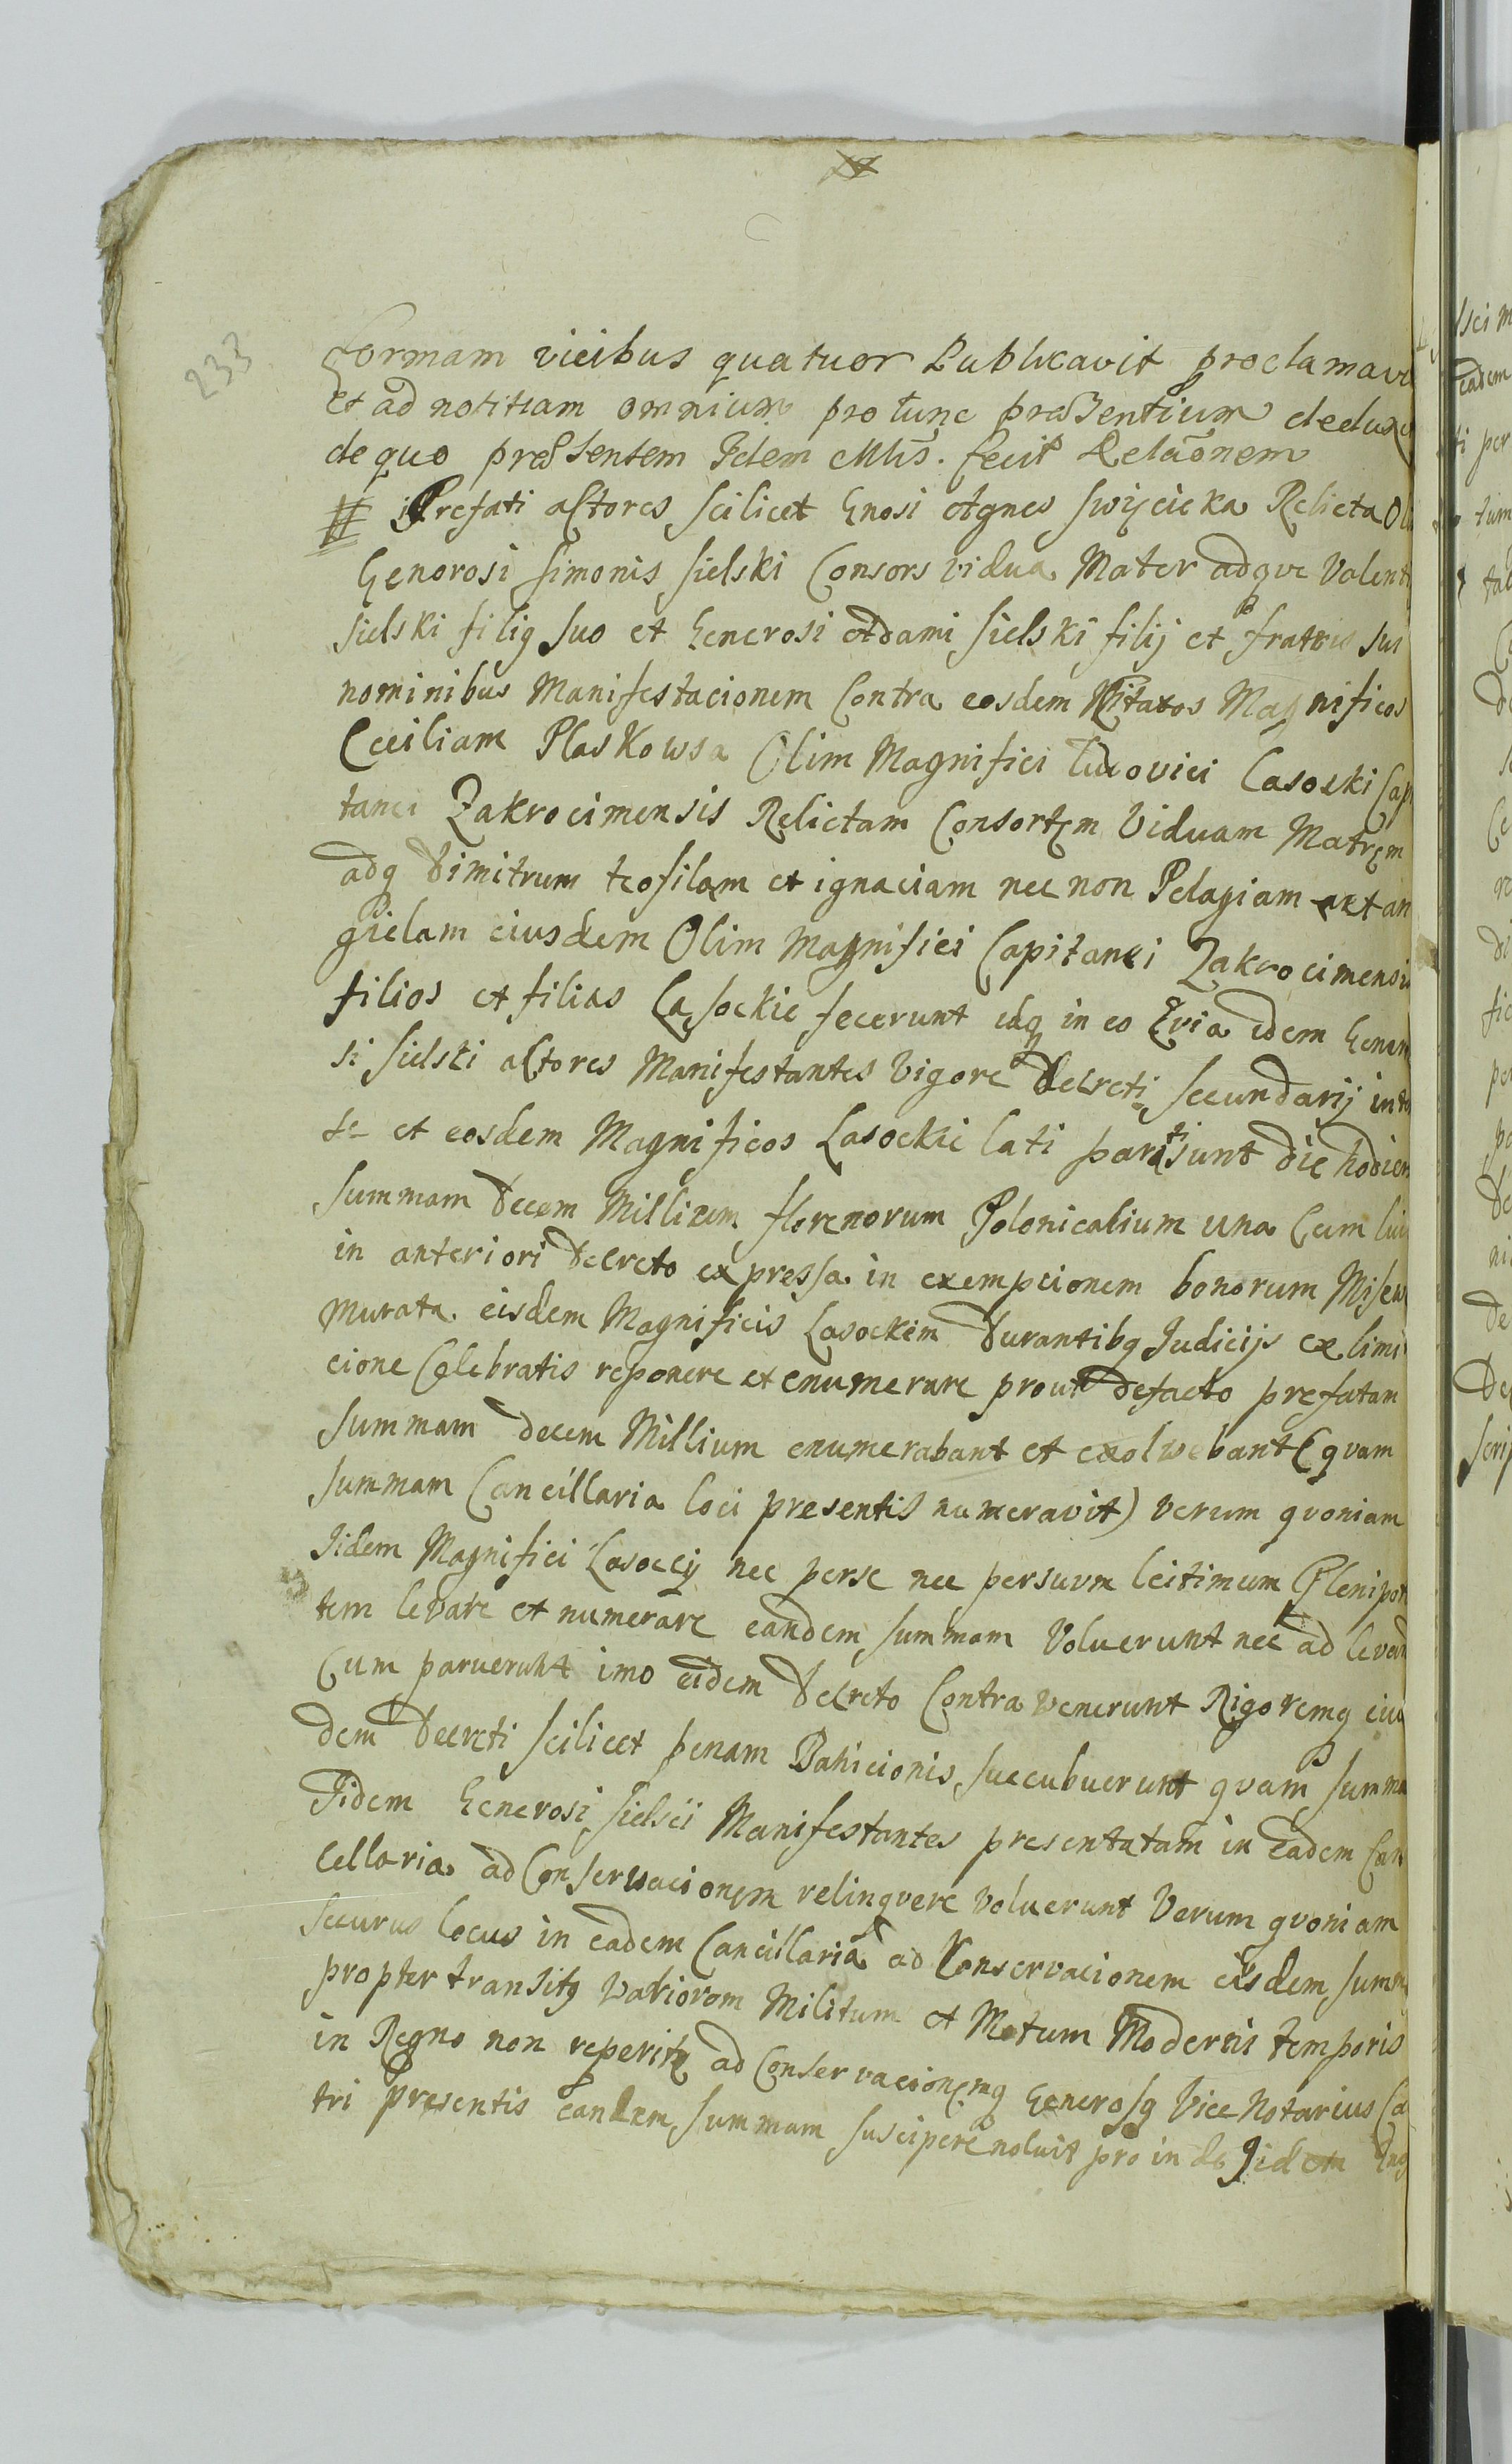 233
formam vicibus quatuor Publicavit proclamavi
et ad notitiam omnium pro tunc præsentium dedux
de quo præsentem Idem Mlis. fecit Relãonem
Prefati actores scilicet Gnosi Agnes Swięcicka Relicta Oli
Generosi Simonis Sielski Consors vidua Mater adque Valent
Sielski filiq suo et Generosi Adami Sielski filij et fratris sui
nominibus Manifestacionem Contra eosdem Citatos Magnificos
Ceciliam Plaskowsa Olim Magnifici Ludovici Lasocki Cap
tanei Zakrocimensis Relictam Consortem Viduam Matrem
adq Dimitrum teofilam et ignaciam nec non Pelagiam et an
gielam eiusdem Olim Magnifici Capitanei Zakrocimensis
filios et filias Lasockie fecerunt idq in eo Qvia idem Gener
si Sielski actores Manifestantes Vigore Decreti secundarij int
se et eosdem Magnificos Lasockie lati parati sunt die hodier
Summam Decem Millium florenorum Polonicalium una Cum
in anteriori Decreto expressa in exempcionem bonorum Misew
Murata eisdem Magnificis Lasockim Durantibq Judicijs ex limi
cione Celebratis reponere et enumerare prout defacto prefatam
Summam decem Millium enumerabant et exolwebant (qvam
Summam Cancillaria loci presentis numeravit) verum qvoniam
Jidem Magnifici Lasoccij nec perse nec persuum leitimum Plenipot
tem levare et numerare eandem summam Voluerunt nec ad levand
Cum paruerunt imo eidem Decreto Contra venerunt Rigoremq eius
dem Decreti scilicet penam Banicionis succubuerunt qvam summa
Jidem Generosi Sielscii Manifestantes presentatam in Eadem Can
cellaria ad Conservacionem relinqvere voluerunt Verum qvoniam
securus locus in eadem Cancillaria ad Conservacionem eisdem summ
propter transitq Variorom Militum et Motum Moderni temporis
in Regno non reperitq ad Conservacionemq Generosq Vice Notarius Ca
tri presentis eandem summam suscipere noluit pro in de Jidem Gno